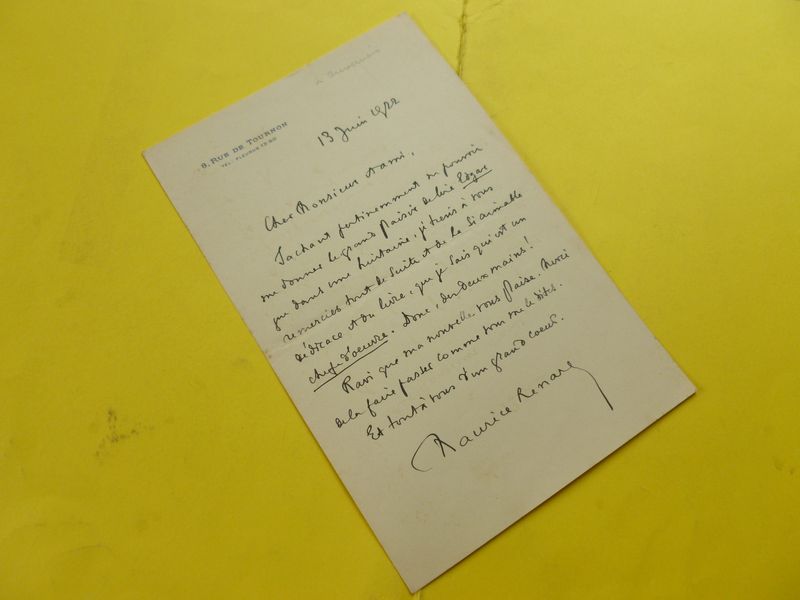 8, RUE DE TOURNON
TEL. FLEURUS
13 Juin 1922
Cher Monsieur & ami,
Sachant pertinemment ne pouvoir
me donner le grand plaisir de lire Edgar
que dans une huitaine, je tiens à vous
remercier tout de suite et de la si aimable
dédicace et du livre, que je sais qui est un
chef-d'oeuvre. Donc, des deux mains!
Ravi que ma nouvelle vous plaise. Merci
de la faire passer comme vous me le dites.
Et tout à vous d'un grand coeur.
Maurice Renard